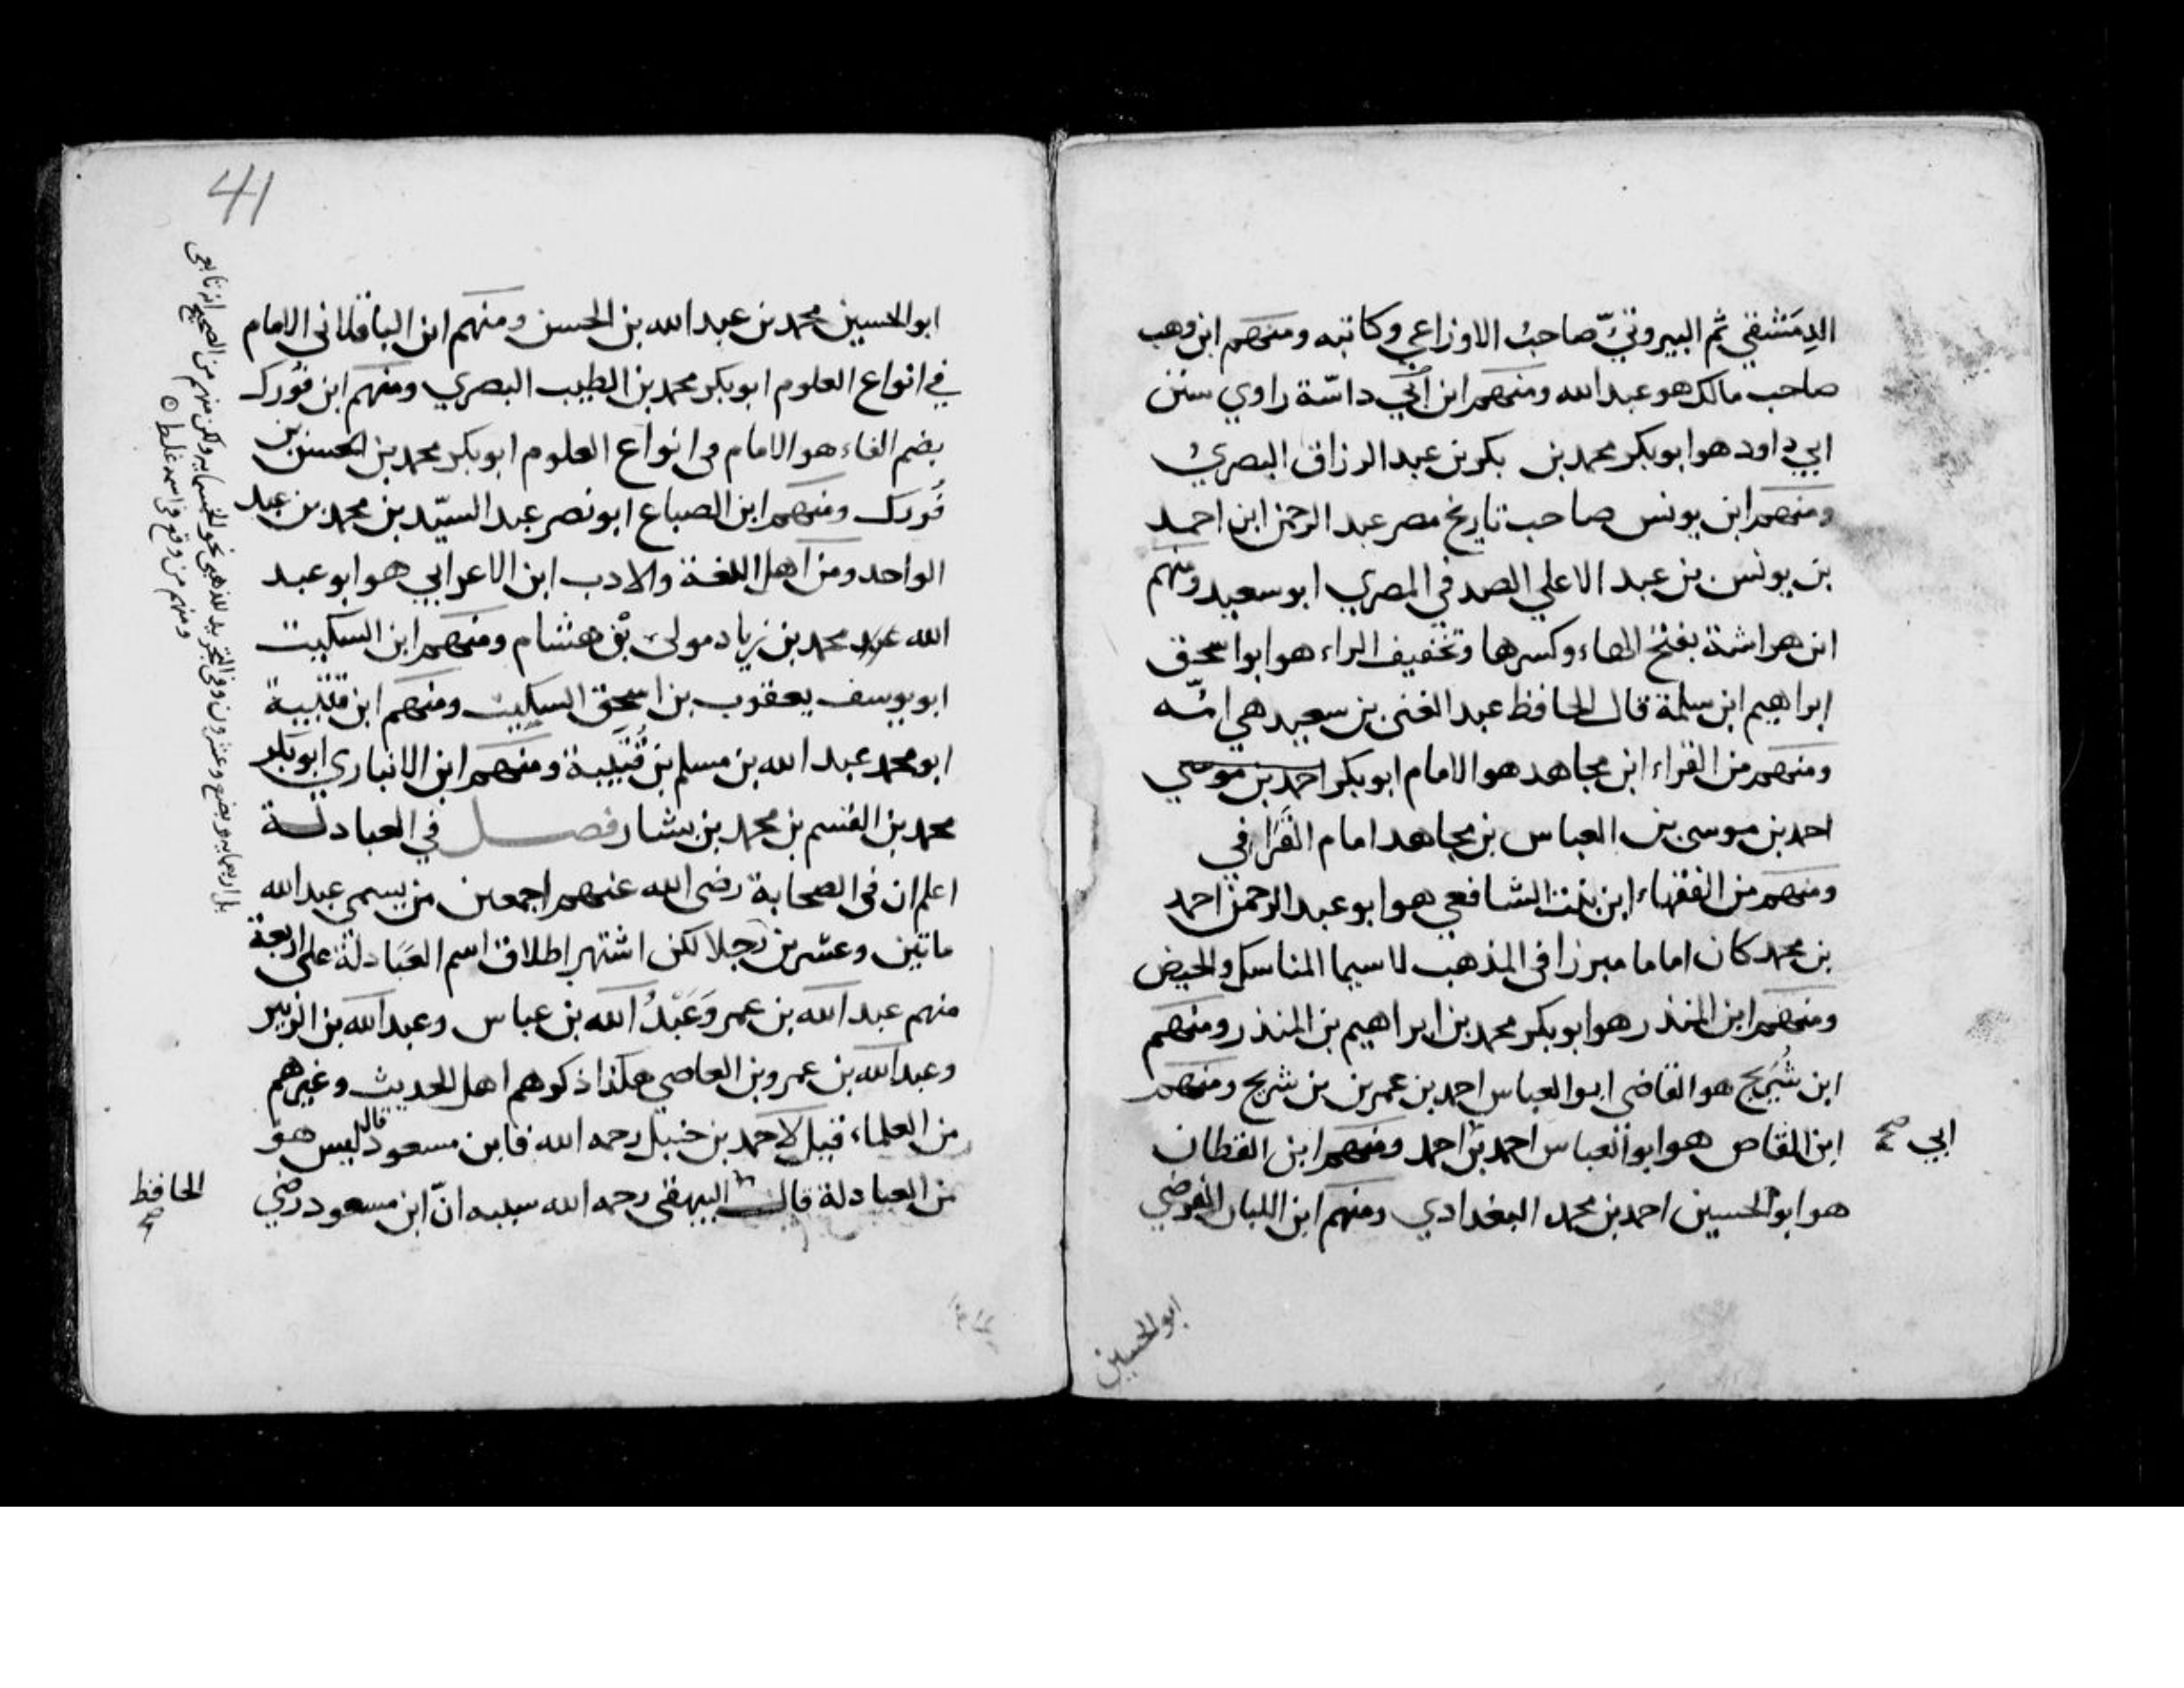 الدِمَشقي ثم البيروتيّ صاحبُ الاوزاعي وكاتبه ومنهم ابن وهب
صاحب مالك هو عبد الله ومنهم ابن أبي داسّة راوي سنن
ابي داود هو ابو بكر محمد بن بكر بن عبد الرزاق البصريُ
ومنهم ابن يونس صاحب تاريخ مصر عبد الرحمن ابن احمد
بن يونس بن عبد الاعلي الصدفي المصري ابو سعيد ومنهم
ابن هراشة بفتح الهاء وكسرها وتخفيف الراء هو ابو اسحق
ابراهيم ابن سلمة قال الحافظ عبد الغنى بن سعيد هي امّه
ومنهم من القراء ابن مجاهد هو الامام ابو بكر احمد بن موسي
احمد بن موسى بن العباس بن مجاهد امام القرا في
ومنهم من الفقهاء ابن بنت الشافعي هو ابو عبد الرحمن احمد
بن محمد كان اماما مبرزا في المذهب لا سيما المناسك والحيض
ومنهم ابن المنذر هو ابو بكر محمد بن ابراهيم بن المنذر ومنهم
ابن شُريح هو القاضى ابو العباس احمد بن عمر بن بن شريح ومنهم
ابن القاص هو ابو العباس احمد بن احمد ومنهم ابن القطان
ابي صح
هو ابو الحسين احمد بن محمد البغدادي ومنهم ابن اللبان الفرضي
ابو الحسين
41
ابو الحسين محمد بن عبد الله بن الحسن ومنهم ابن الباقلانى الامام
في انواع العلوم ابو بكر محمد بن الطيب البصري ومنهم ابن فورك
بضم الفاء هو الامام فى انواع العلوم ابو بكر محمد بن الحسن بن
فُورك ومنهم ابن الصباع ابو نصر عبد السيّد بن محمد بن عبد
الواحد ومن اهل اللغة والادب ابن الاعرابي هو ابو عبد
الله محمد بن زياد مولى بنى هشام ومنهم ابن السكيت
ابو يوسف يعقوب بن اسحق السكيت ومنهم ابن قتيبة
ابو محمد عبد الله بن مسلم بن قُتَيبة ومنهم ابن الانباري ابو بكر
محمد بن القسم بن محمد بن بشار فصل في العبادلة
اعلم ان في الصحابة رضى الله عنهم اجمعين من يسمي عبد الله
ماتين وعشرين رجلا لكن اشتهر اطلاق اسم العَبادلة على اربعة
منهم عبد الله بن عمر وَعَبْدُ الله بن عباس وعبد الله بن الزبير
وعبد الله بن عمرو بن العاصي هكذا ذكرهم اهل الحديث وغيرهم
من العلماء قيل لاحمد بن حنبل رحمه الله فابن مسعود قال ليس هو
من العبادلة قال البيهقى رحمه الله سببه انّ ابن مسعود رضي
الحافظ
صح
ومنهم من وقع في اسمه غلط